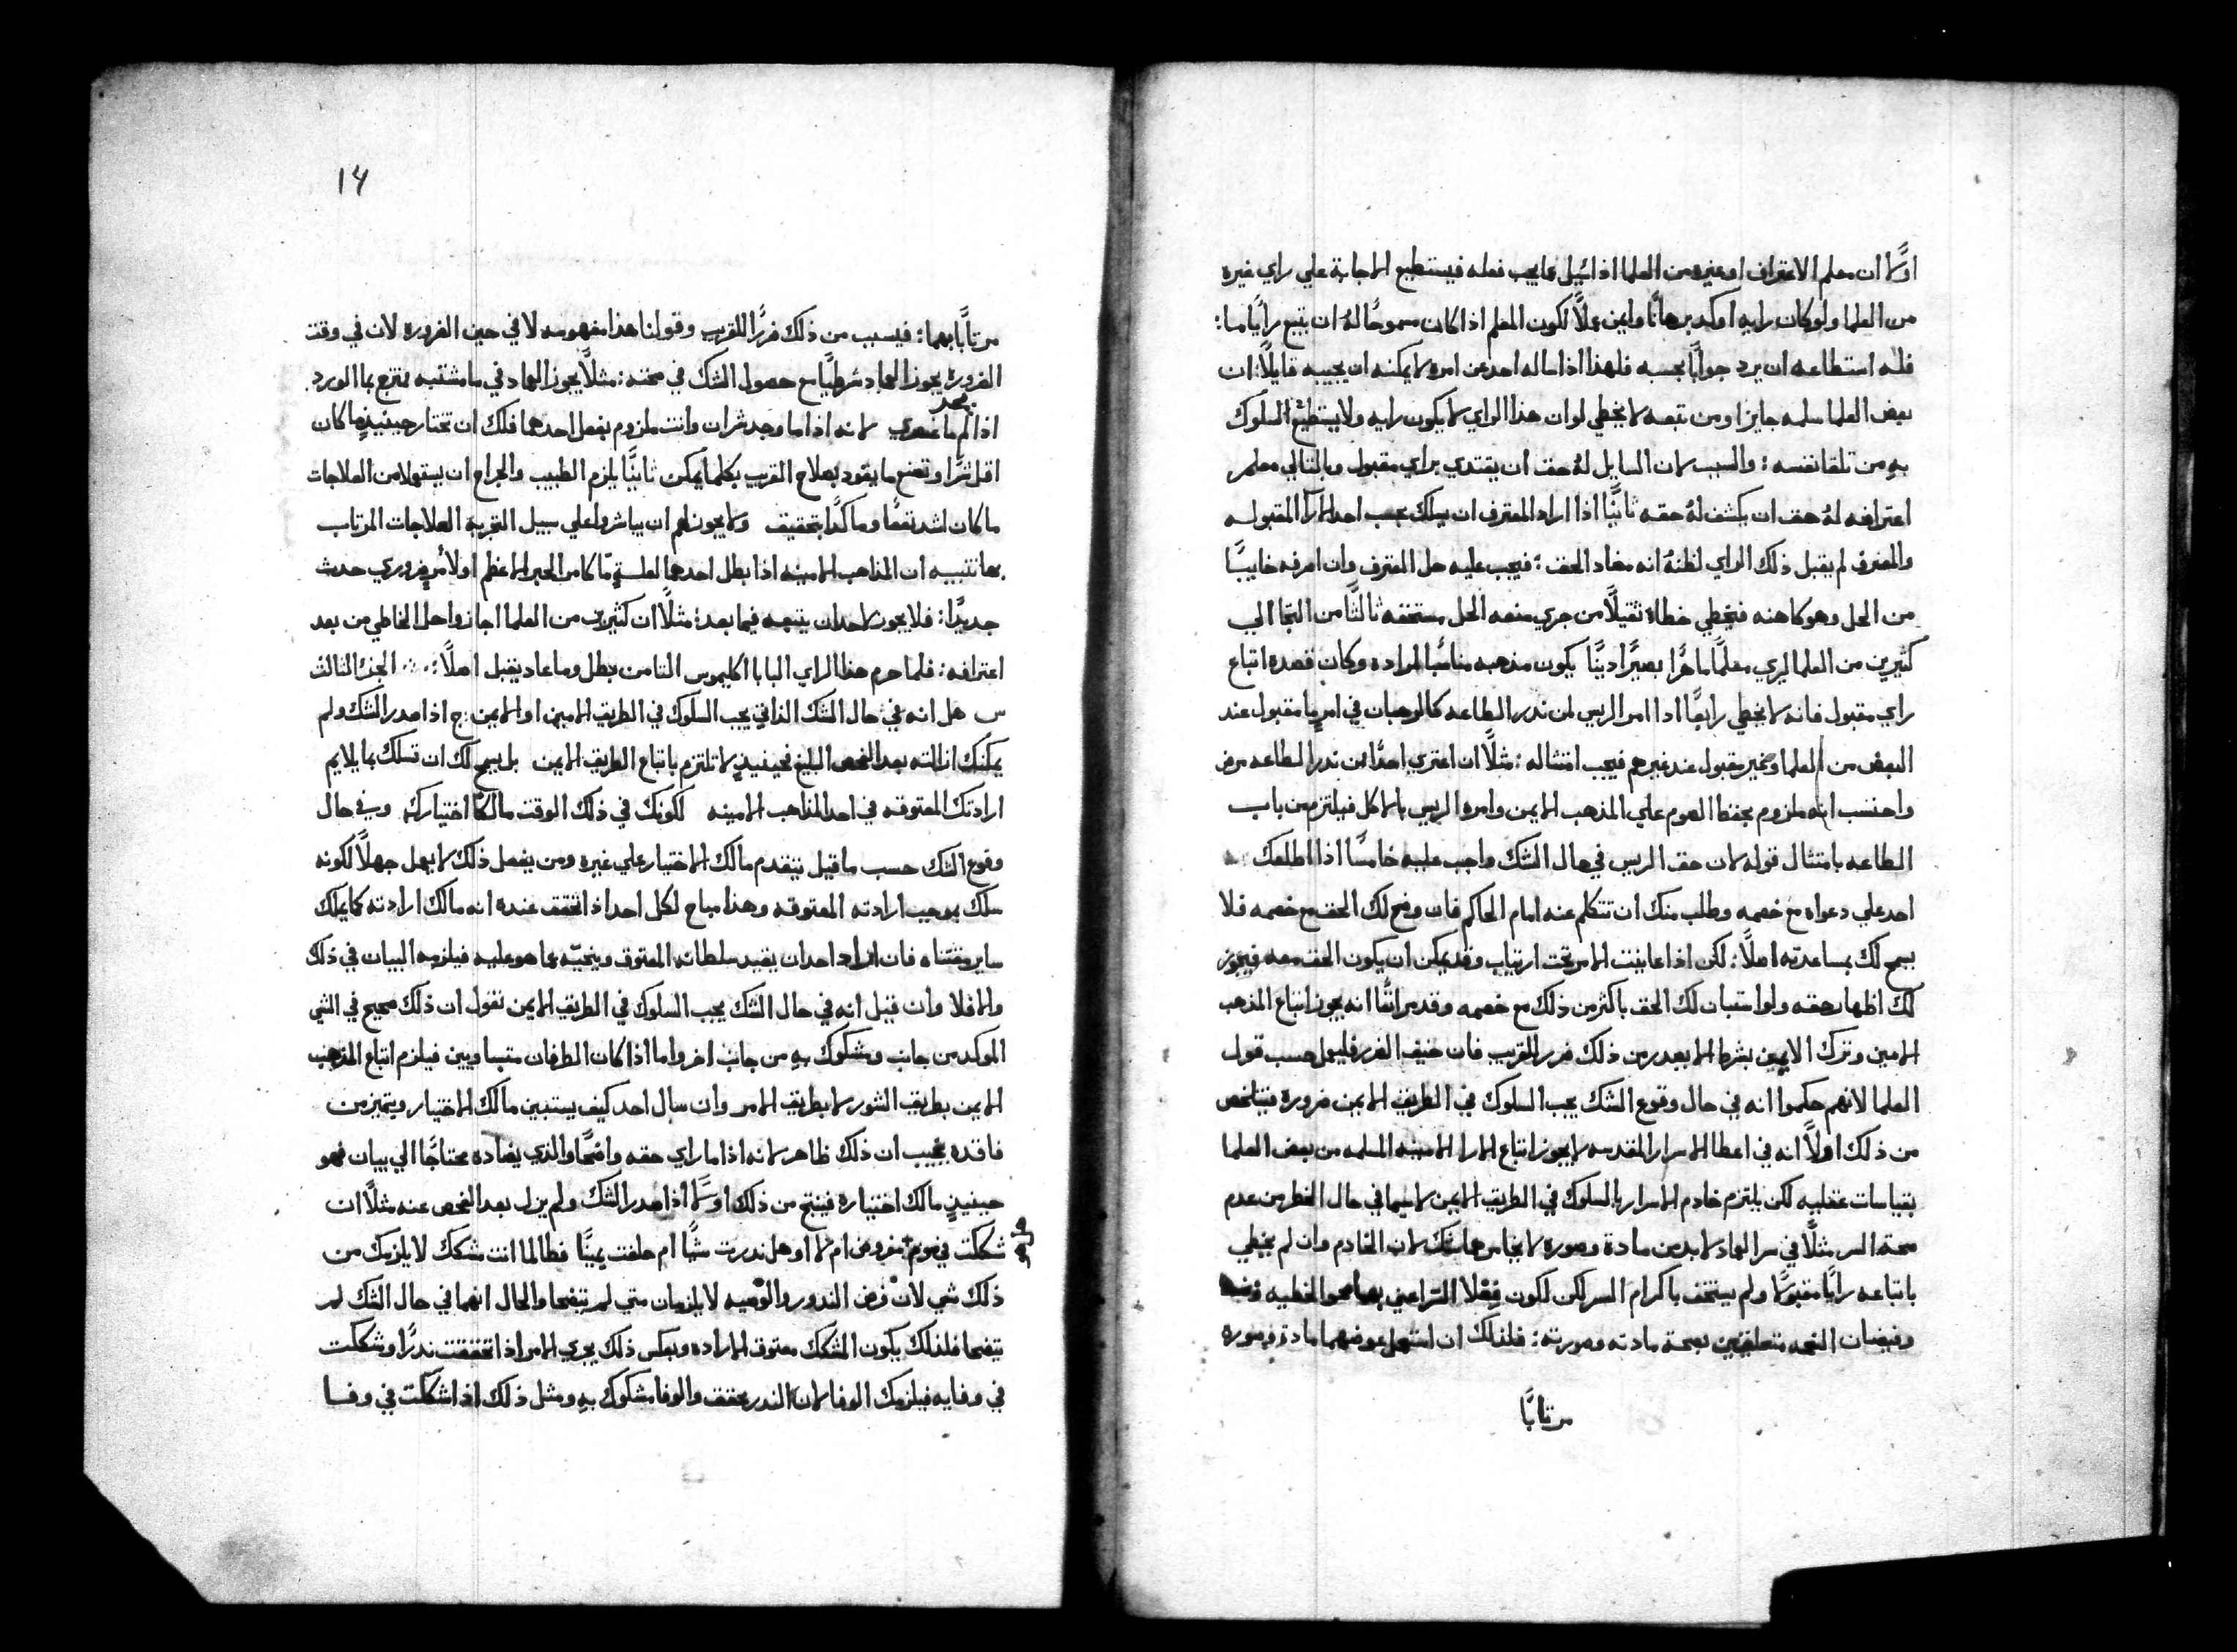 اولًا ان معلم الاعتراف او غيره من العلما اذا سُيل عما يجب فعله فيستطيع الاجابة علي راي غيره
من العلما ولو كان رايه اوكد برهانًا وايمن عملًا لكون المعلم اذا كان مسموحًا لهُ ان يتبع رايًا ما:
فله استطاعه ان يرد جوابًا بحسبه فلهذا اذا ساله احد عن امره لا يمكنه ان يجيبه قايلًا: ان
بعض العلما سلمه جايزا ومن تبعه لا يخطي لو ان هذا الراي لا يكون رايه ولا يستطيع السلوك
بهِ من تلقا نفسه: والسبب لان السايل لهُ حق ان يقتدي براي مقبول وبالتالي معلم
اعترافه لهُ حق ان يكشف لهُ حقه ثانيًا اذا اراد المعترف ان يسلك بحسب احد الارآ المقبوله
والمعرف لم يقبل ذلك الراي لظنهُ انه مضاد الحق: فيجب عليه حل المعترف وان اصرفه خايبًا
من الحل وهو كاهنه فيخطي خطاءً ثقيلًا من جري منعه الحل مستحقه ثالثًا من التجا الي
كثيرين من العلما ليري معلمًا ماهرًا بصيرًا دينًا يكون مذهبه مناسبًا لمراده وكان قصده اتباع
راي مقبول فانه لا يخطي رابعًا اذا امر الريس لمن نذر الطاعه كالرهبان في امرٍ ما مقبول عند
البعض من العلما وغير مقبول عند غيرهم فيجب امتثاله: مثلًا ان اعتري احدًا من نذر الطاعه مرض
واحتسب انه ملزوم بحفظ الصوم علي المذهب الايمن وامره الريس بالاكل فيلتزم من باب
الطاعه بامتثال قوله لان حق الريس في حال الشك واجب عليه خامسًا اذا اطلعك
احد علي دعواه مع خصمه وطلب منك ان تتكلم عنه امام الحاكم فان وضح لك الحق مع خصمه فلا
يسمح لك بمساعدته اصلًا: لكن اذا عاينت الامر تحت ارتياب وقد يمكن ان يكون الحق معه فيجوز
لك اظهار حقه ولو استبان لك الحق باكثر من ذلك مع خصمه وقد مر انفًا انه يجوز اتباع المذهب
الامين وترك الايمن بشرط الا يصدر من ذلك ضرر للقريب فان خيف الضرر فليعمل حسب قول
العلما لانهم حكموا انه في حال وقوع الشك يجب السلوك في الطريق الايمن ضروره فيتلخص
من ذلك اولًا انه في اعطا الاسرار المقدسه لا يجوز اتباع الارا الامينه المسلمه من بعض العلما
بقياسات عقليه لكن يلتزم خادم الاسرار بالسلوك في الطريق الايمن لا سيما في حال الخطر من عدم
صحة السر مثلًا في سر العماد لا بد من مادة وصوره لا يخامرهما شك لان الخادم وان لم يخطي
باتباعه رايًا مقبولًا ولم يستخف باكرام السر لكن لكون فعلا السر اعني محو الخطيه
وفيضان النعمه متعلقين بصحة مادته وصورته: فلذلك ان استعمل عوضهما مادة وصوره
مرتابًا
١٤
مرتابًا بهما: فيسبب من ذلك ضررًا للقريب وقولنا هذا مفهومه لا في حين الضروره لان في وقت
الضروره يجوز العماد شرطيًا مع حصول الشك في صحته: مثلًا يجوز العماد في ما مشتبه ممتزج بما الورد
اذا لم يجد ما غيره لانه اذا ما وجد شران وانت ملزوم بفعل احدهما فلك ان تختار حينيذٍ ما كان
اقل شرًا وتصنع ما يقود بصلاح القريب بكلما يمكن ثانيًا يلزم الطبيب والجراح ان يستعملا من العلاجات
ما كان اشد نفعًا وماكدًا بتحقيق ولا يجوز لهم ان يباشروا علي سبيل التجربه العلاجات المرتاب
بها تنبيه ان المذاهب الامينه اذا بطل احدهما لعلةٍ مّا كامر الحبر الاعظم او لامرٍ ضروري حدث
جديدًا: فلا يجوز لاحد ان يتبعه فيما بعد: مثلًا ان كثيرين من العلما اجازوا حل الخاطي من بعد
اعترافه: فلما حرم هذا الراي البابا اكليموس الثامن بطل وما عاد يقبل اصلًا: الجزء الثالث
س هل انه في حال الشك الذاتي يجب السلوك في الطريق الامين او الايمن: ج اذا صدر الشك ولم
يمكنك ازالته بعد الفحص البليغ فحينيذٍ لا تلتزم باتباع الطريق الايمن بل يسمح لك ان تسلك بما يلايم
ارادتك المعتوقه في احد المذاهب الامينه لكونك في ذلك الوقت مالكًا اختيارك وفي حال
وقوع الشك حسب ما قيل يتقدم مالك الاختيار علي غيره ومن يفعل ذلك لا يعمل جهلًا لكونه
سلك بموجب ارادته المعتوقه وهذا مباح لكل احد اذا تحقق عنده انه مالك ارادته كما يملك
ساير مقتناه فان اراد احد ان يقيد سلطانه المعتوق وينحيّه عما هو عليه فيلزمه البيان في ذلك
والا فلا وان قيل انه في حال الشك يجب السلوك في الطريق الايمن نقول ان ذلك صحيح في الشي
الموكد من جانب ومشكوك بهِ من جانب اخر واما اذا كان الطرفان متساويين فيلزم اتباع المذهب
الايمن بطريق الشور لا بطريق الامر وان سال احد كيف يستبين مالك الاختيار ويتميز من
فاقده نجيب ان ذلك ظاهر لانه اذا ما راي حقه واضحًا والذي يضاده محتاجًا الي بيان فهو
حينيذٍ مالك اختياره فينتج من ذلك اولًا اذا صدر الشك ولم يزل بعد الفحص عنه مثلًا ان
شككت في صومٍ مفروض ام لا او هل نذرت شيًا ام حلفت يمينًا فطالما انت شكك لا يلزمك من
ذلك شي لان فرض النذور والوصيه لا يلزمان متي لم يتضحا والحال انهما في حال الشك لم
يتضحا فلذلك يكون المشكك معتوق الاراده وبعكس ذلك يجري الامر اذا تحققت نذرًا وشككت
في وفايه فيلزمك الوفا لان النذر محقق والوفا مشكوك بهِ ومثل ذلك اذا شككت في وفا